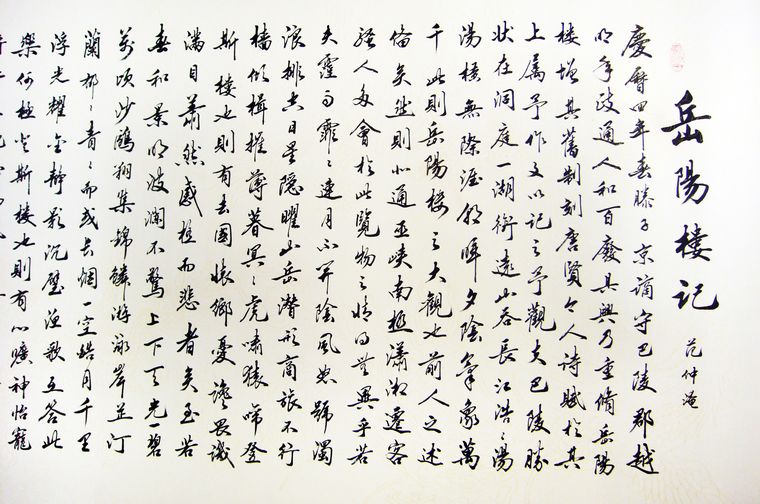 岳陽樓記
范仲淹
慶曆四年春滕子京謫守巴陵郡越
明年政通人和百廢具興乃重脩岳陽
樓增其舊制刻唐賢今人詩賦於其
上屬予作文以記之予觀夫巴陵勝
狀在洞庭一湖銜遠山吞長江浩〻湯
湯橫無際涯朝暉夕陰氣象萬
千此則岳陽樓之大觀也前人之述
備矣然則北通巫峽南極瀟湘遷客
騷人多會於此覽物之情得無異乎若
夫霪雨霏〻連月不開陰風怒號濁
浪排空日星隱曜山岳潛形商旅不行
檣傾楫摧薄暮冥〻虎嘯猿啼登
斯樓也則有去國懷鄉憂讒畏譏
滿目蕭然感極而悲者矣至若
春和景明波瀾不驚上下天光一碧
萬頃沙鷗翔集錦鱗游泳岸芷汀
蘭郁〻青〻而或長煙一空皓月千里
浮光耀金靜影沉璧漁歌互答此
樂何極登斯樓也則有心曠神怡寵